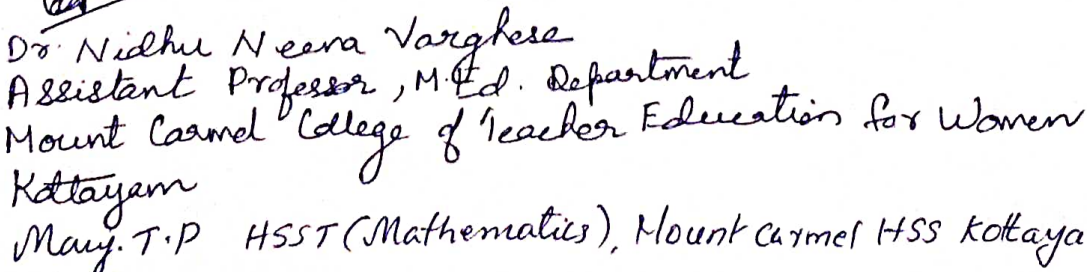 Dr. Nidhu Neena Varghese
Assistant Professor, M.Ed. Department
Mount Carmel College of Teacher Education for Women
Kottayam
Mary. T.P HSST (Mathematics), Mount Carmel HSS Kottaya